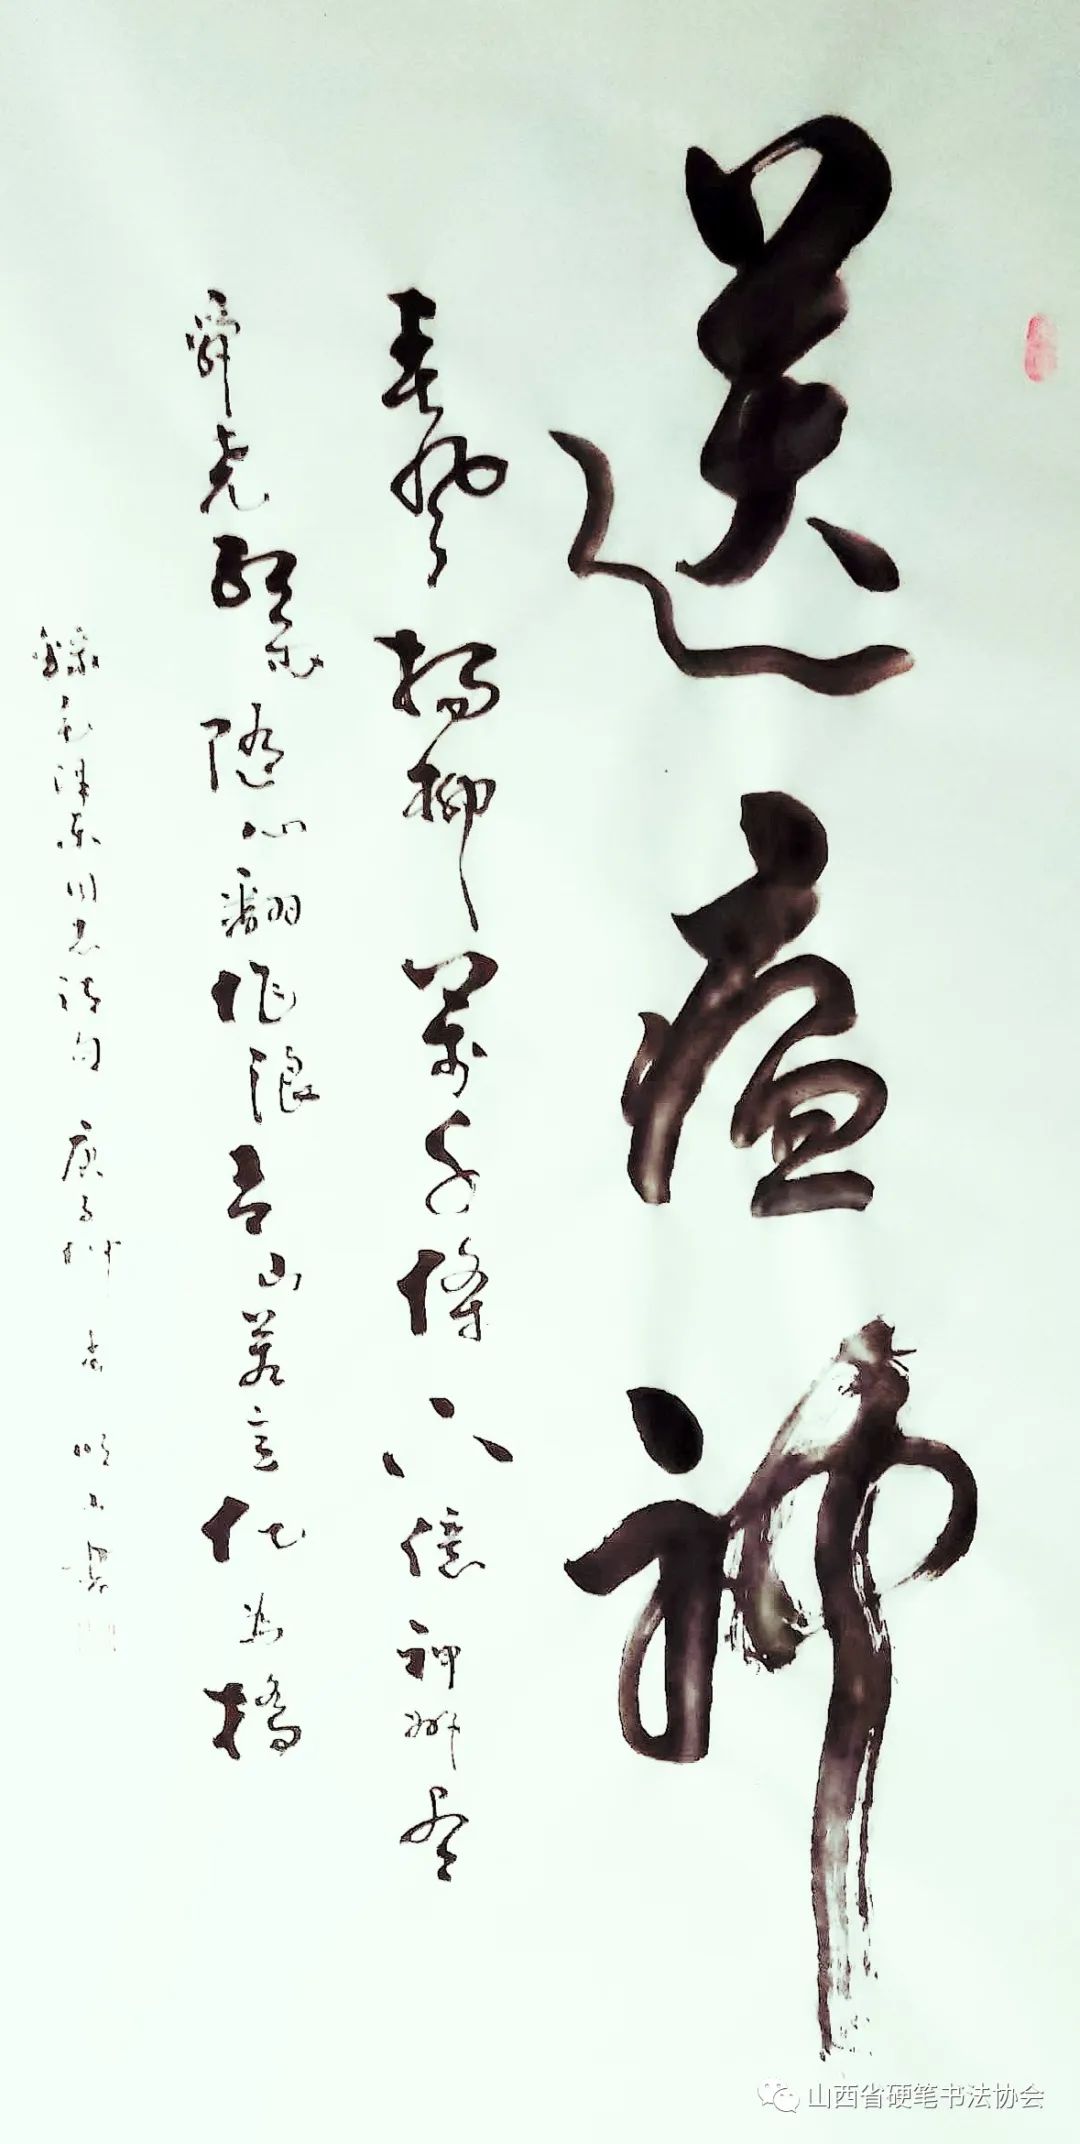 送瘟神
春風楊柳萬千條六億神州尽
舜尧紅雨隨心翻作浪青山著意化為橋
錄毛澤東同志詩句 庚子
山西省硬笔书法协会